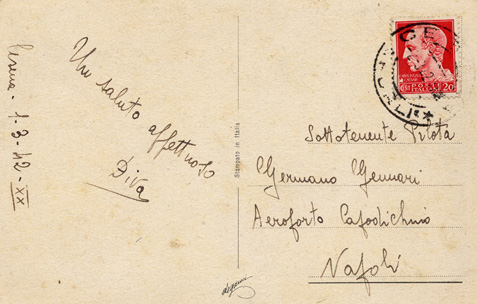 Cesena - 1-3-42-XX
Un saluto affettuoso
Diva
Stampato in Italia
20
Sottotenente Pilota
Germano Gennari
Aeroporto Capodichino
Napoli